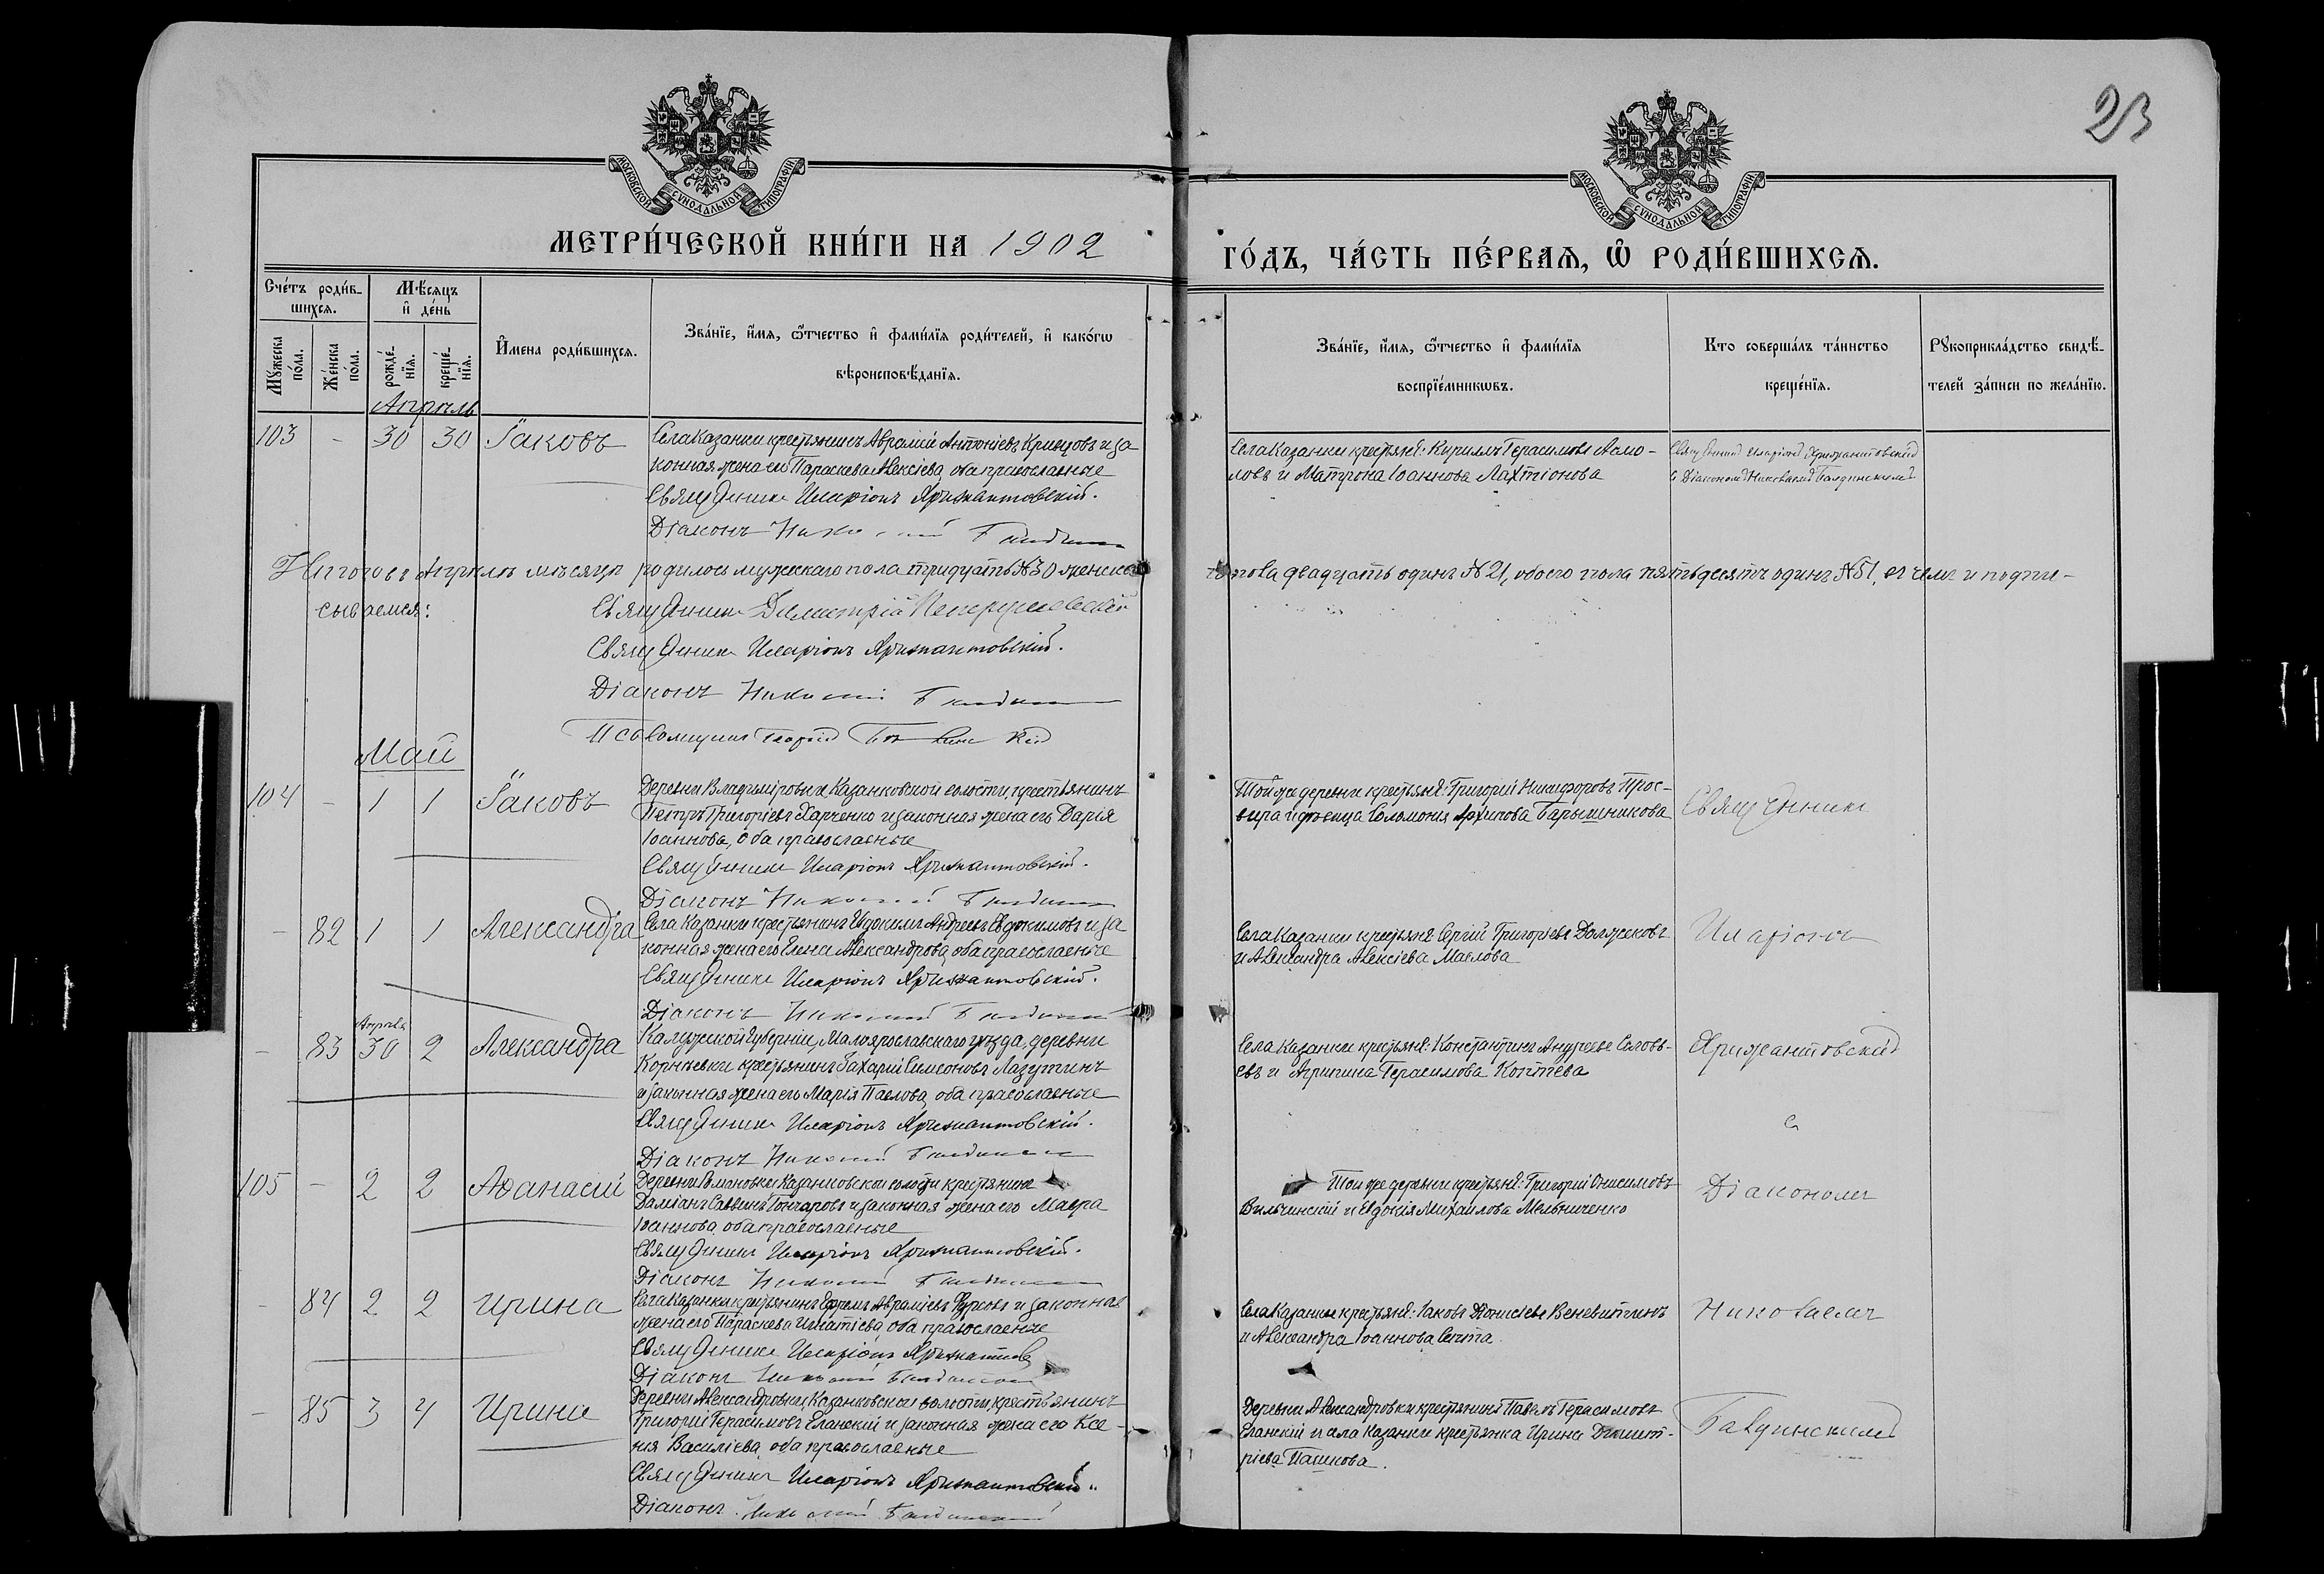 23
МОСКОВСКОЙ СѴНОДАЛЬНОЙ ТИПОГРАФІИ
МОСКОВСКОЙ СѴНОДАЛЬНОЙ ТИПОГРАФІИ
МЕТРИ́ЧЕСКОЙ КНИ́ГИ НА 1902
ГО́ДЪ, ЧА́СТЬ ПЕ́РВАѦ, Ѡ РОДИ́ВШИХСѦ.
Сче́тъ роди́в-
шихсѧ.
Мѣ́сѧцъ
и҆ де́нь
Мꙋ́жеска
по́ла.
Же́нска
по́ла.
рожде́-
нїѧ.
креще́-
нїѧ.
И҆мена роди́вшихсѧ.
Зва́нїе, и҆́мѧ, ѻ҆́тчество и҆ фами́лїѧ роди́телей, и҆ како́гѡ
вѣроисповѣ́данїѧ.
Зва́нїе, и҆́мѧ, ѻ҆́тчество и҆ фами́лїѧ
воспрїе́мникѡвъ.
Кто соверша́лъ та́инство
креще́нїѧ.
Рꙋкоприкла́дство свидѣ́-
телей за́писи по жела́нїю.
Апрѣль
103 - 30 30 Іаковъ
Села Казанки крестьянинъ Авраамій Антоніевъ Кривцовъ и за
конная жена его Параскева Алексіева, оба православные
Священникъ Иларіонъ Крижантовскій.
Діаконъ Николай
Села Казанки крестьяне: Кириллъ Герасимовъ
ловъ и Матрона Іоаннова Лахтіонова
Священникъ Иларіонъ Крижантовскій
съ Діакономъ Николаемъ Балдинскимъ
Итого въ Апрѣлѣ мѣсяцѣ родилось мужескаго пола тридцать №30 женска
го пола двадцать одинъ №21, обоего пола пятьдесятъ одинъ №51, въ чемъ и подпи-
сываемся:
Священникъ Димитрій
Священникъ Иларіонъ Крижантовскій.
Діаконъ Николай
Псаломщикъ
Май
104 - 1 1 Іаковъ
Деревни Владиміровки, Казанковской волости, крестьянинъ
Петръ Григоріевъ Харченко и законная жена его Дарія
Іоаннова, оба православные
Священникъ Иларіонъ Крижантовскій.
Діаконъ Николай
Той же деревни крестьяне: Григорій Никифоровъ Прос-
вира и дѣвица Соломонія Архипова Барышникова
Священникъ
- 82 1 1 Александра
Села Казанки крестьянинъ Евдокимъ Андреевъ Евдокимовъ и за
конная жена его Елена Александрова, оба православные
Священникъ Иларіонъ Крижантовскій.
Діаконъ Николай
Села Казанки крестьяне Сергій Григоріевъ Должиковъ
и Александра Алексіева Маслова
Иларіонъ
Апрѣля
- 83 30 2 Александра
Калужской Губерніи, Малоярославскаго уѣзда, деревни
Корнѣевки крестьянинъ Захарій Симеоновъ Лазутинъ
и законная жена его Марія Павлова, оба православные
Священникъ Иларіонъ Крижантовскій.
Діаконъ Николай
Села Казанки крестьяне: Константинъ Андреевъ Соловь-
евъ и Агрипина Герасимова Коптева
Крижантовскій
съ
105 - 2 2 Аѳанасій
Деревни Романовки Казанковской волости крестьянинъ
Даміанъ Саввинъ Гончаровъ и законная жена его Мавра
Іоаннова, оба православные
Священникъ Иларіонъ Крижантовскій.
Діаконъ Николай
Той же деревни крестьяне: Григорій Онисимовъ
Вильчинскій и Евдокія Михайлова Мельниченко
Діакономъ
- 84 2 2 Ирина
Села Казанки крестьянинъ Ефремъ Авраміевъ Фурсовъ и законная
жена его Параскева Игнатіева, оба православные
Священникъ Иларіонъ
Діаконъ Николай
Села Казанки крестьяне: Іаковъ Діонисіевъ Веневитинъ
и Александра Іоаннова
Николаемъ
- 85 3 4 Ирина
Деревни Александровки, Казанковской волости, крестьянинъ
Григорій Герасимовъ Еланскій и законная жена его Ксе-
нія Василіева, оба православные
Священникъ Иларіонъ Крижантовскій.
Діаконъ Николай Балдинскій
Деревни Александровки крестьянинъ Павелъ Герасимовъ
Еланскій и села Казанки крестьянка Ирина Димит-
ріева Пашкова.
Балдинскимъ